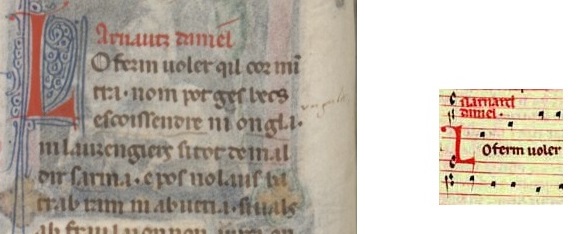 Arnautz daniel
LO ferm uoler qil cor mi
tra. nom pot ges becs
escoissendre ni ongla.
ni lauzengiers sitot de mal
dir sarma. e pos nolaus
ab ram ni ab ueria. siuals
ab frau
arnaret
daniel.
LO ferm uoler